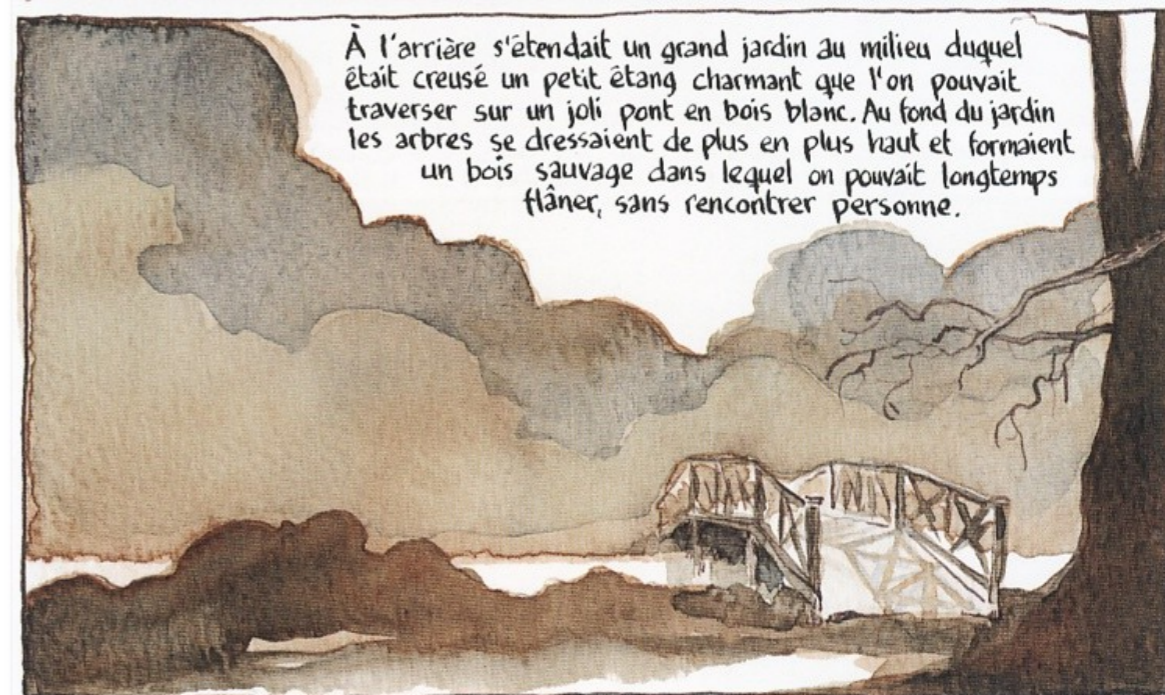 À l'arrière s'étendait un grand jardin au milieu duquel
était creusé un petit étang charmant que l'on pouvait
traverser sur un joli pont en bois blanc. Au fond du jardin
les arbres se dressaient de plus en plus haut et formaient
un bois sauvage dans lequel on pouvait longtemps
flâner, sans rencontrer personne.